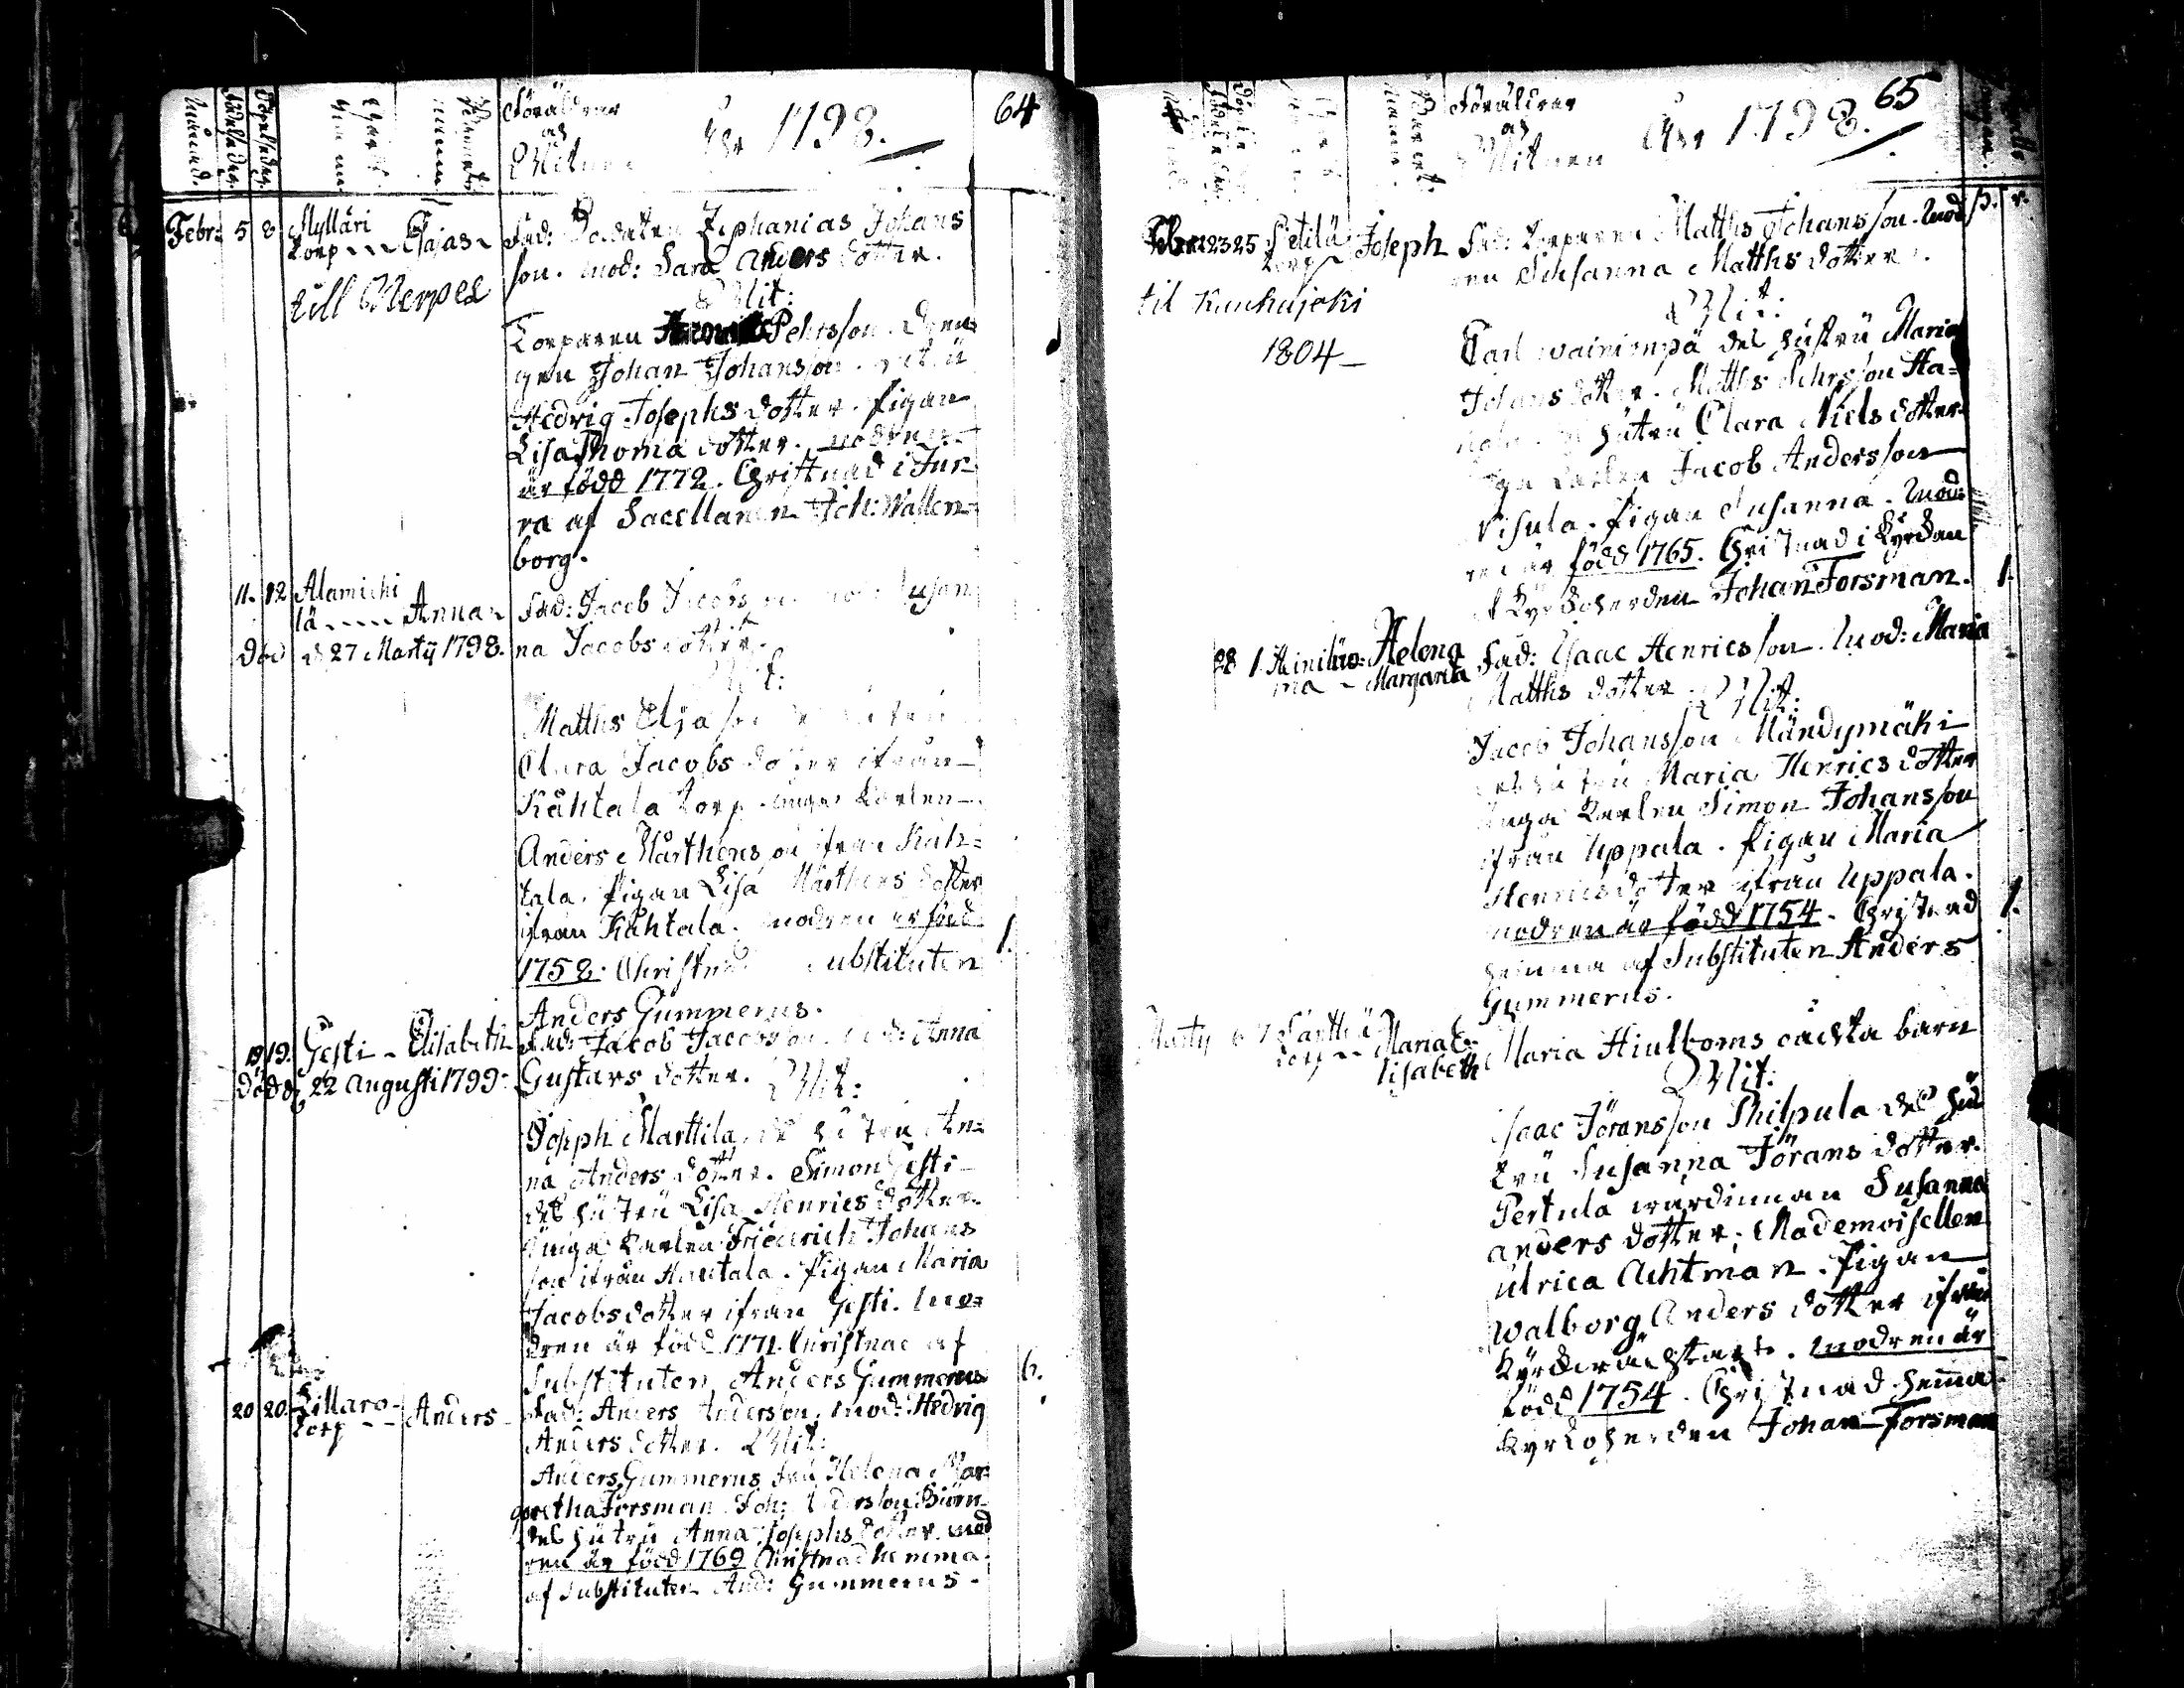 Månad.
Födelsedag.
Döpelsedag.
Föräldrar
och
Witnen
Åhr 1798.
64
Febr: 5 8 Mylläri
torp Esajas
till Nerpes
Fad: Soldaten Zephanias Johans
son. Mod: Sara Anders dotter.
Wit:
Torparen Pehrsson. Dren
gen Johan Johansson.
Hedvig Josephs dotter. Pigan
Lisa Thomä dotter. modren
är född 1772. Christnad i Jur
va af Sacellanen Joh: Wallen
borg.
11. 12 Alamicki
lä Anna
död d 27 Martij 1798.
Fad: Jacob Jacobs Susan
na Jacobs dotter.
Wit:
Matths Eljasson
Clara Jacobs dotter ifrån
Kåhtala torp. unga karlen
Anders Mårthensson ifrån Kåh=
tala. Pigan Lisa Mårthens dotter
ifrån Kåhtala. modren är född
1758. Christnad Substituten
1.
Anders Gummerus.
19 19. Gesti Elisabeth
död d 22 Augusti 1799.
Fad: Jacob Jacobsson. Mod: Anna
Gustavs dotter. Wit:
Joseph Marttila des hustru An=
na Anders dotter. Simon Gesti
des hustru Lisa Henrics dotter.
Unga karlen Friedrich Johans
son ifrån Kautala. Pigan Maria
Jacobs dotter ifrån Gesti. Mo=
dren är född 1771. Christnad af
Substituten Anders Gummerus
6.
20 20. Sillaro
torp Anders
Fad: Anders Andersson. Mod: Hedvig
Anders dotter. Wit:
Anders Gummerus fru Helena Mar
garetha Forsman. Joh: Andersson Biörn
des hustru Anna Josephs dotter. mod
ren är född 1769 Christnad hemma
af Substituten And: Gummerus.
Föräldrar
och
Witnen
Åhr 1798.
65
Febr: 23 25 Petilä
torp Joseph
til Kauhajoki
1804
Fad: torparen Matths Johansson. Mod
ren Susanna Matths dotter.
Wit:
Carl wainionpä des hustru Maria
Johans dotter. Matths Pehrsson Ha=
hustru Clara Niels dotter
unga karlen Jacob Andersson
Visula. Pigan Susanna. Mod:
ren är född 1765. Christnad i Kyrckan
af Kyrckoherden Johan Forsman.
1.
28 1 Heiniluo=
ma Helena
Margareta
Fad: Isaac Henricsson. Mod: Maria
Matths dotter. Wit:
Jacob Johansson Mändymäki
des hustru Maria Henrics dotter
unga karlen Simon Johansson
ifrån Uppala. Pigan Maria
Henrics dotter ifrån Uppala.
modren är född 1754. Christnad
1.
hemma af Substituten Anders
Gummerus.
Martij 6 7
torp Maria E=
lisabeth
Maria Hiulboms oäckta barn
Wit:
Isaac Jöransson Philpula des hu
tru Susanna Jörans dotter.
Pertula wärdinnan Susanna
anders dotter. Mademoisellen
Ulrica Achtman. Pigan
Walborg Anders dotter ifrån
modren är
född 1754. Christnad hemma
Kyrckoherden Johan Forsman